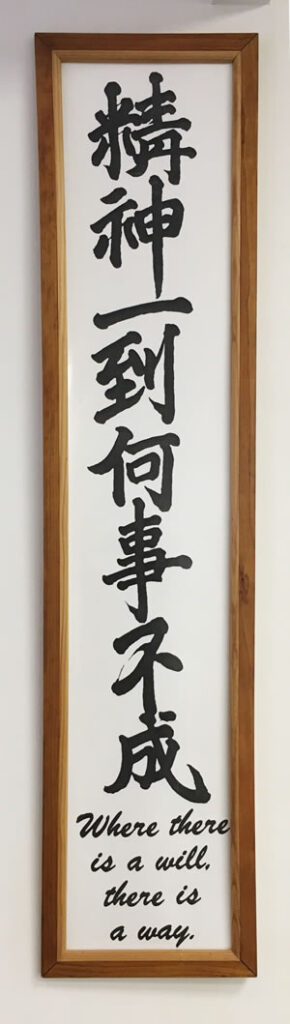 精神一到何事不成
Where there
is a will,
there is
a way.